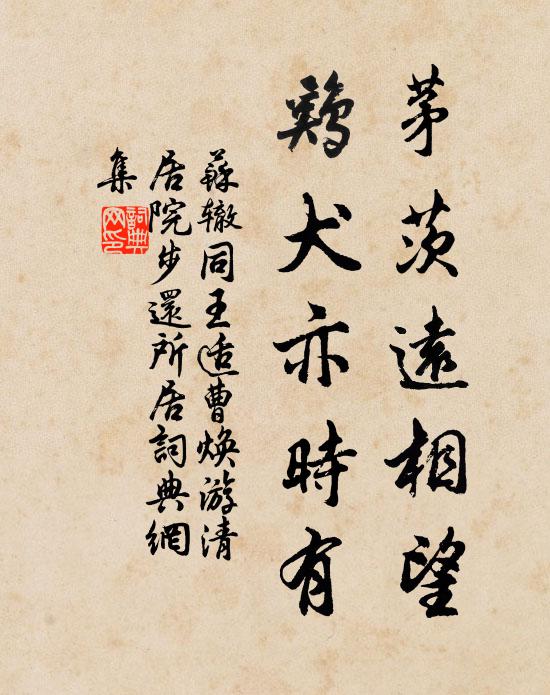 茅茨遠相望
鷄犬亦時有
蘇辙同王适曹焕游清
居院步還所居詞典網
集
詞典网印